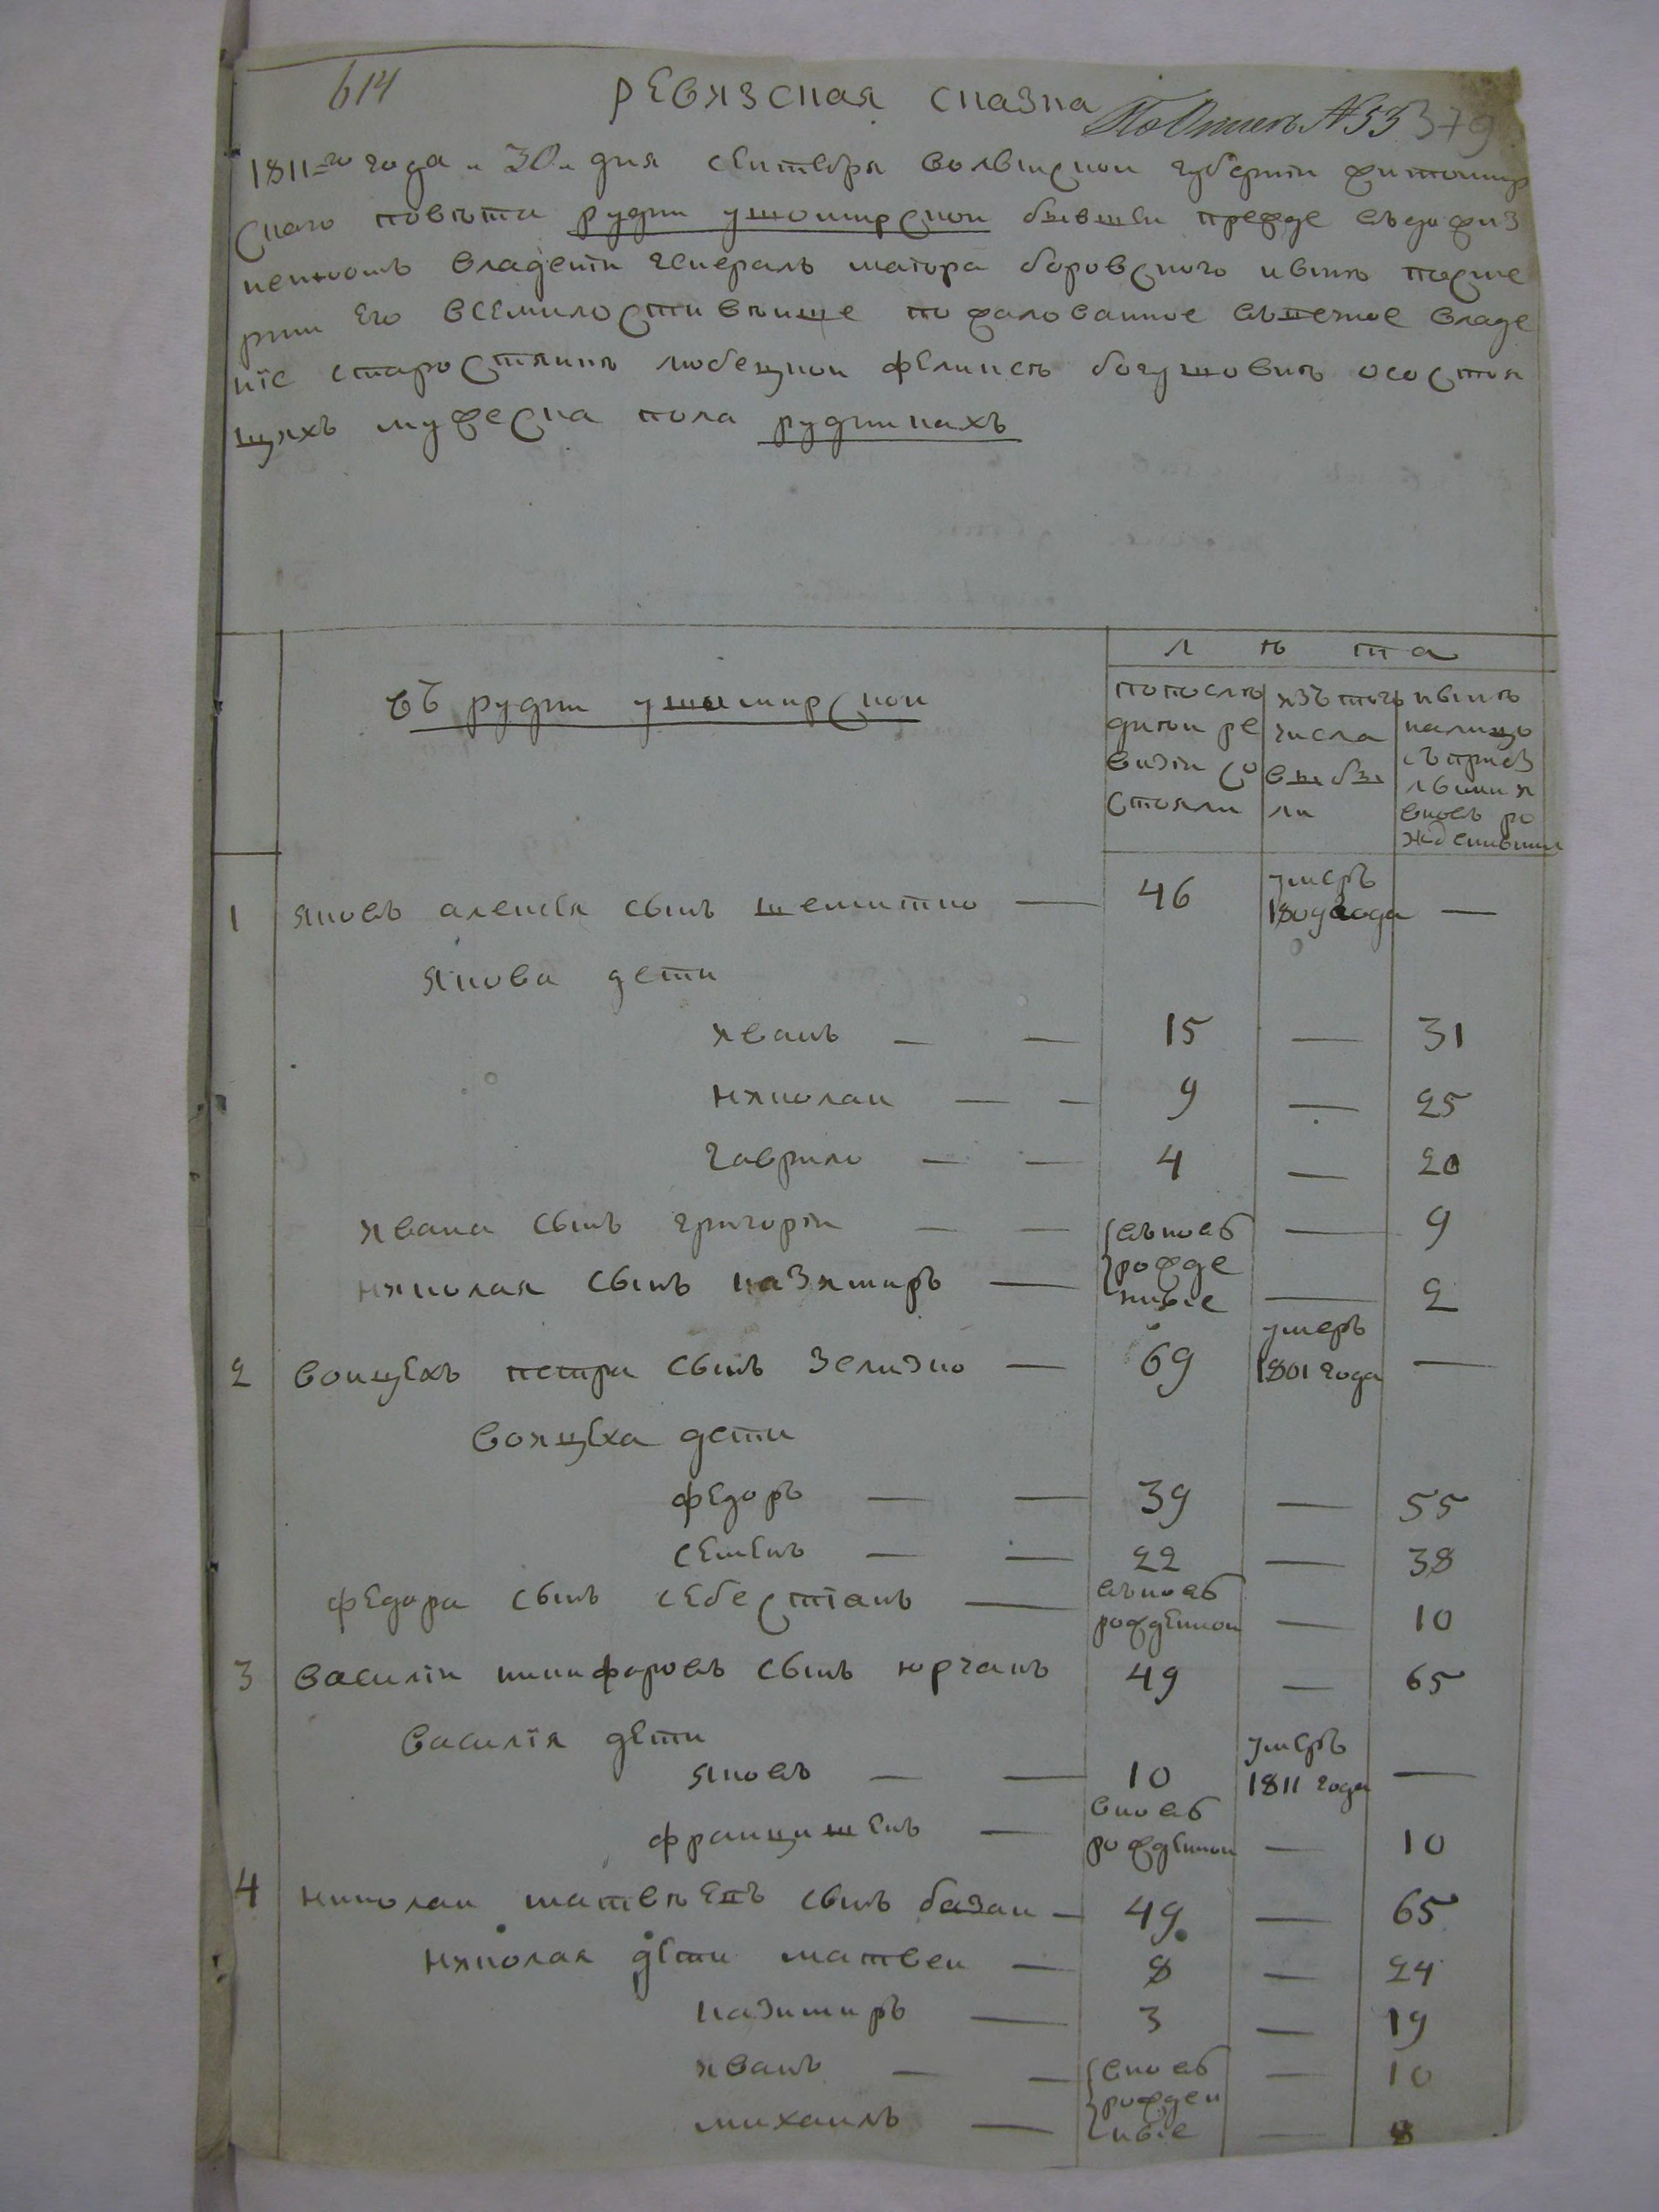 614
РЕВЯЗСКАЯ СКАЗКА
По Описи №53 379
1811=го года „30„ дня сентебря волынской губернии житомир
скаго повѣта рудни ушомирской бывшеи прежде въ до жиз
неномъ владении генералъ маиора боровского нынѣ после
рии Его ВСЕМИЛОСтивѣише пожалованное вѣчное владе
нїе старостянинѣ любецкои фЕликсъ богушовинѣ о состоя
щяхъ мужеска пола рудникахъ
въ рудни ушомирскои
л ѣ та
по послѣ
днѣи ре
визіи со
стояли
язъ того
числа
выбы
ли
нынѣ
налицо
съ прибы
лыми я
вновь ро
жденными
1 яковъ алексея сынъ шемитко — 46 умеръ 1809 года —
якова дети
яванъ — — 15 — 31
няколаи — — 9 — 25
гаврило — — 4 — 20
явана сынъ григорiи — — вьновь — 9
няколая сынъ казямиръ — рожде ныие — 2
2 воицЕхъ петра сынъ зелизко — 69 умеръ 1801 года —
вояцЕха дети
фЕдоръ — — 39 — 55
сЕмЕнъ — — 22 — 38
фЕдора сынъ сЕбестїанъ — вьновь рожденнои — 10
3 василiи никифоровъ сынъ юрчакъ 49 — 65
василїя дЕти
яковъ — — 10 умеръ 1811 года —
францишЕкъ — вновь рожденнои — 10
4 николаи матвѣЕвъ сынъ базан — 49 — 65
няколая дЕти матвеи — 8 — 24
казимиръ — 3 — 19
яванъ — — вновь — 10
михаилъ — рожден ныие — 8